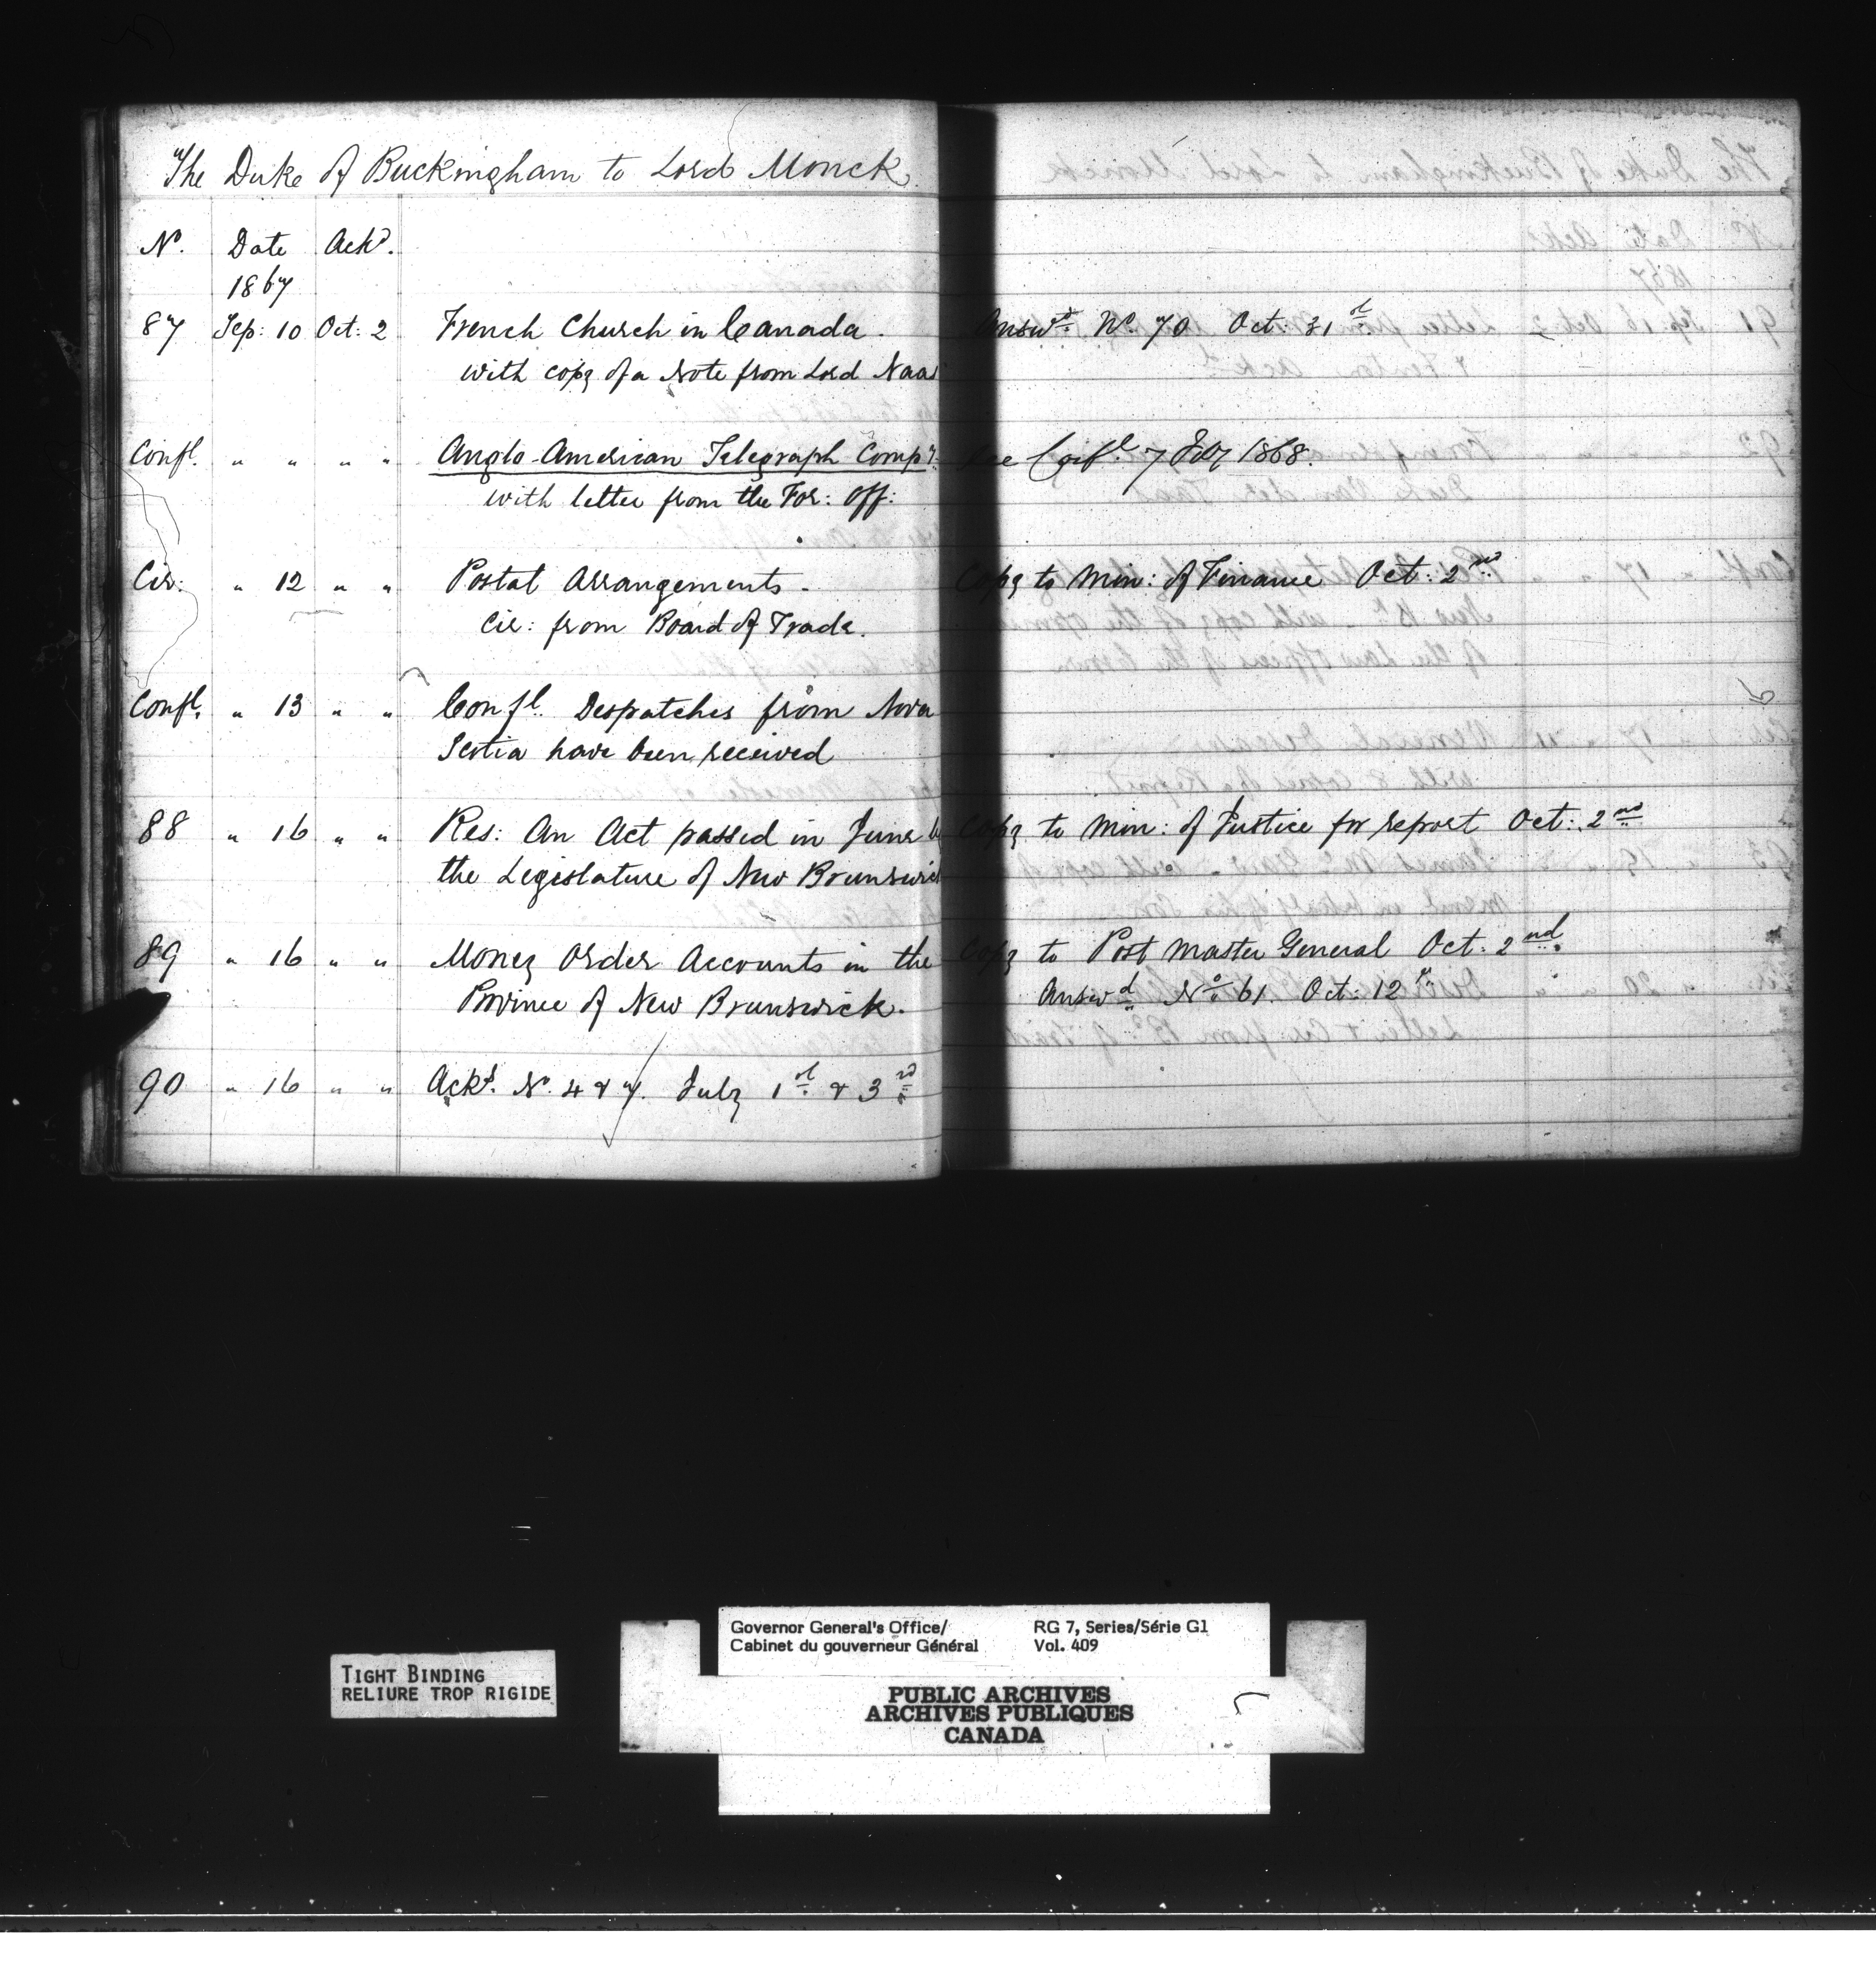 The Duke of Buckingham to Lord Monck
No. Date Ackd.
1867
87 Sep: 10 Oct: 2 French Church in Canada. Answd. No. 70 Oct: 31st
with copy of a Note from Lord Naas
Confl. " " " " Anglo-American Telegraph Compy. See Confl. 7 Feby 1868.
with letter from the For: Off:
Cir: " 12 " " Postal Arrangements. Copy to Min: of Finance Oct: 2nd
Cir: from Board of Trade.
Confl. " 13 " " Confl. Despatches from Nova
Scotia have been received
88 " 16 " " Res: An Act passed in June by Copy to Min: of Justice for report Oct: 2nd
the Legislature of New Brunswick
89 " 16 " " Money Order Accounts in the Copy to Post Master General Oct: 2nd.
Province of New Brunswick. Answd No. 61. Oct: 12th
90 " 16 " " Ackd. No. 4 & 7. July 1st & 3rd
TIGHT BINDING
RELIURE TROP RIGIDE
Governor General's Office/ RG 7, Series/Série G1
Cabinet du gouverneur Général Vol. 409
PUBLIC ARCHIVES
ARCHIVES PUBLIQUES
CANADA